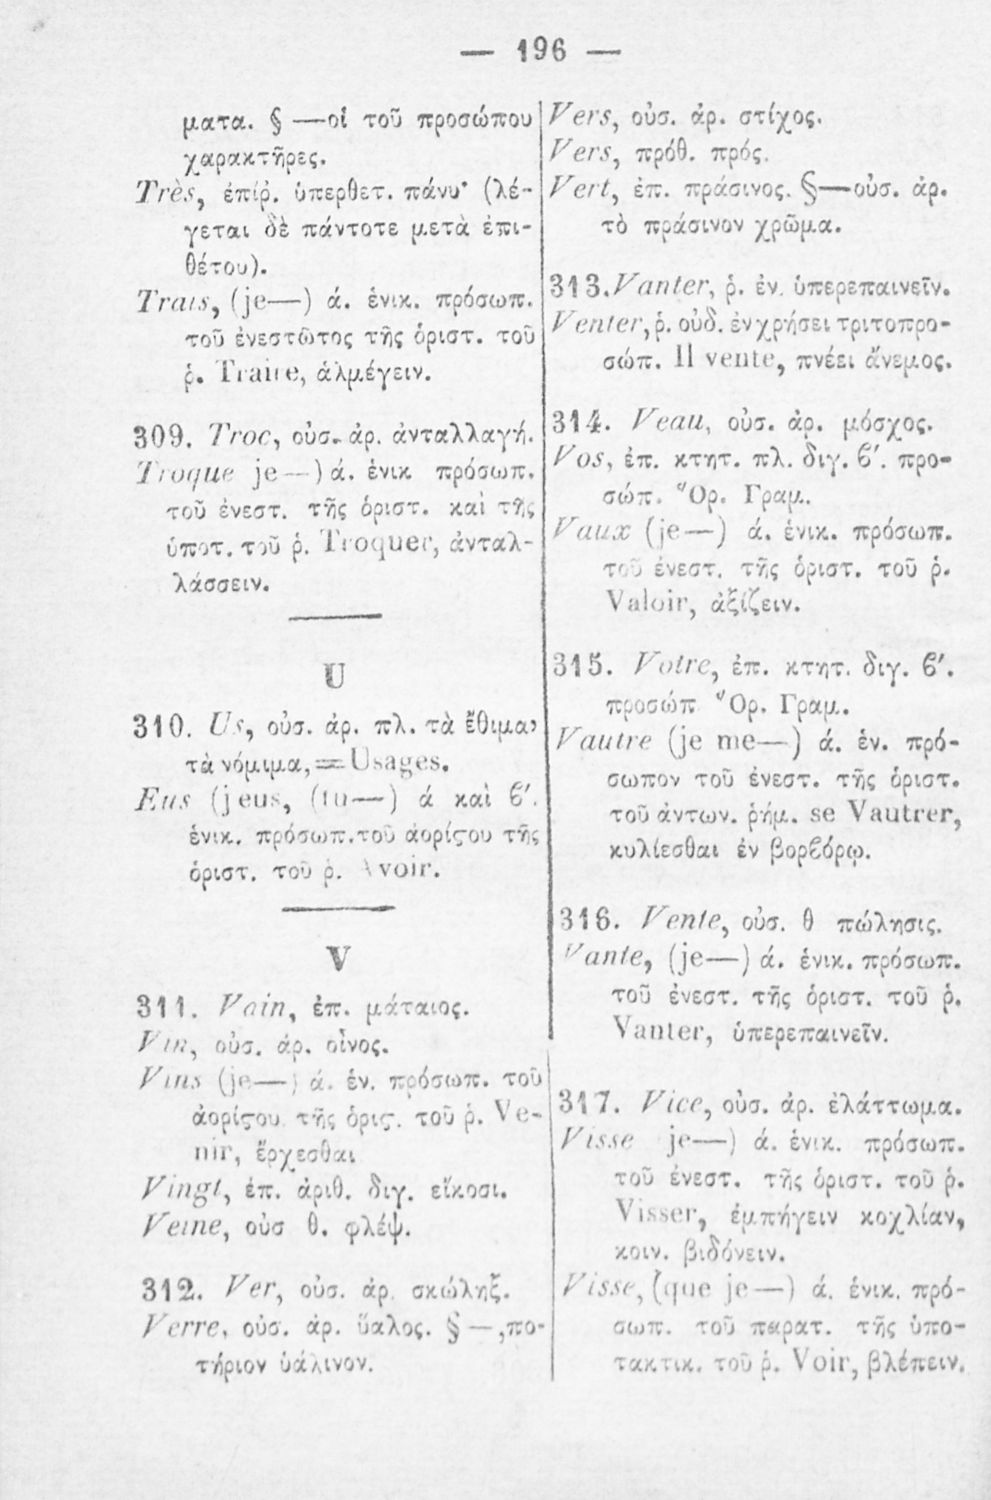 — 196 —
ματα. § —οἱ τοῦ προσώπου
χαρακτῆρες.
Très, ἐπίῤ. ὑπερθετ. πάνυ· (λέ-
γεται δὲ πάντοτε μετὰ ἐπι-
θέτου).
Trais, (je—) ά. ἑνικ. πρόσωπ.
τοῦ ἐνεστῶτος τῆς ὁριστ. τοῦ
ῥ. Traire, ἀλμέγειν.
309. Troc, οὐσ. ἀρ. ἀνταλλαγή.
Troque je—) ά. ἑνικ πρόσωπ.
τοῦ ἐνεστ. τῆς ὁριστ. καὶ τῆς
ὑποτ. τοῦ ῥ. Troquer, ἀνταλ-
λάσσειν.
U
310. Us, οὐσ. ἀρ. πλ. τὰ ἔθιμα,
τὰ νόμιμα,=Usages.
Eus (j eus, (tu—) ά καὶ ϐ′.
ἑνικ. πρόσωπ. τοῦ ἀορίϛου τῆς
ὁριστ. τοῦ ῥ. Avoir.
V
311. Vain, ἐπ. μάταιος.
Vin, οὐσ. ἀρ. οἶνος.
Vins (je—) ά. ἑν. πρόσωπ. τοῦ
ἀορίϛου τῆς ὁριϛ. τοῦ ῥ. Ve-
nir, ἔρχεσθαι
Vingt, ἐπ. ἀριθ. διγ. εἴκοσι.
Veine, οὐσ θ. φλέψ.
312. Ver, οὐσ. ἀρ. σκώληξ.
Verre, οὐσ. ἀρ. ὕαλος. § —,πο-
τήριον ὑάλινον.
Vers, οὐσ. ἀρ. στίχος.
Vers, πρόθ. πρός.
Vert, ἐπ. πράσινος. §—οὐσ. ἀρ.
τὸ πράσινον χρῶμα.
313. Vanter, ῥ. ἐν. ὑπερεπαινεῖν.
Venter, ῥ. οὐδ. ἐν χρήσει τριτοπρο-
σώπ. Il vente, πνέει ἄνεμος.
314. Veau, οὐσ. ἀρ. μόσχος.
Vos, ἐπ. κτητ. πλ. διγ. ϐ′. προ-
σώπ. Ὅρ. Γραμ.
Vaux (je—) ά. ἑνικ. πρόσωπ.
τοῦ ἐνεστ. τῆς ὁριστ. τοῦ ῥ.
Valoir, ἀξίζειν.
315. Votre, ἐπ. κτητ. διγ. ϐ′.
προσώπ Ὅρ. Γραμ.
Vautre (je me—) ά. ἑν. πρό-
σωπον τοῦ ἐνεστ. τῆς ὁριστ.
τοῦ ἀντων. ῥήμ. se Vautrer,
κυλίεσθαι ἐν βορϐόρῳ.
316. Vente, οὐσ. θ πώλησις.
Vante, (je—) ά. ἑνικ. πρόσωπ.
τοῦ ἐνεστ. τῆς ὁριστ. τοῦ ῥ.
Vanter, ὑπερεπαινεῖν.
317. Vice, οὐσ. ἀρ. ἐλάττωμα.
Visse je—) ά. ἑνικ. πρόσωπ.
τοῦ ἐνεστ. τῆς ὁριστ. τοῦ ῥ.
Visser, ἐμπήγειν κοχλίαν,
κοιν. βιδόνειν.
Visse, (que je—) ά. ἑνικ. πρό-
σωπ. τοῦ παρατ. τῆς ὑπο-
τακτικ. τοῦ ῥ. Voir, βλέπειν.